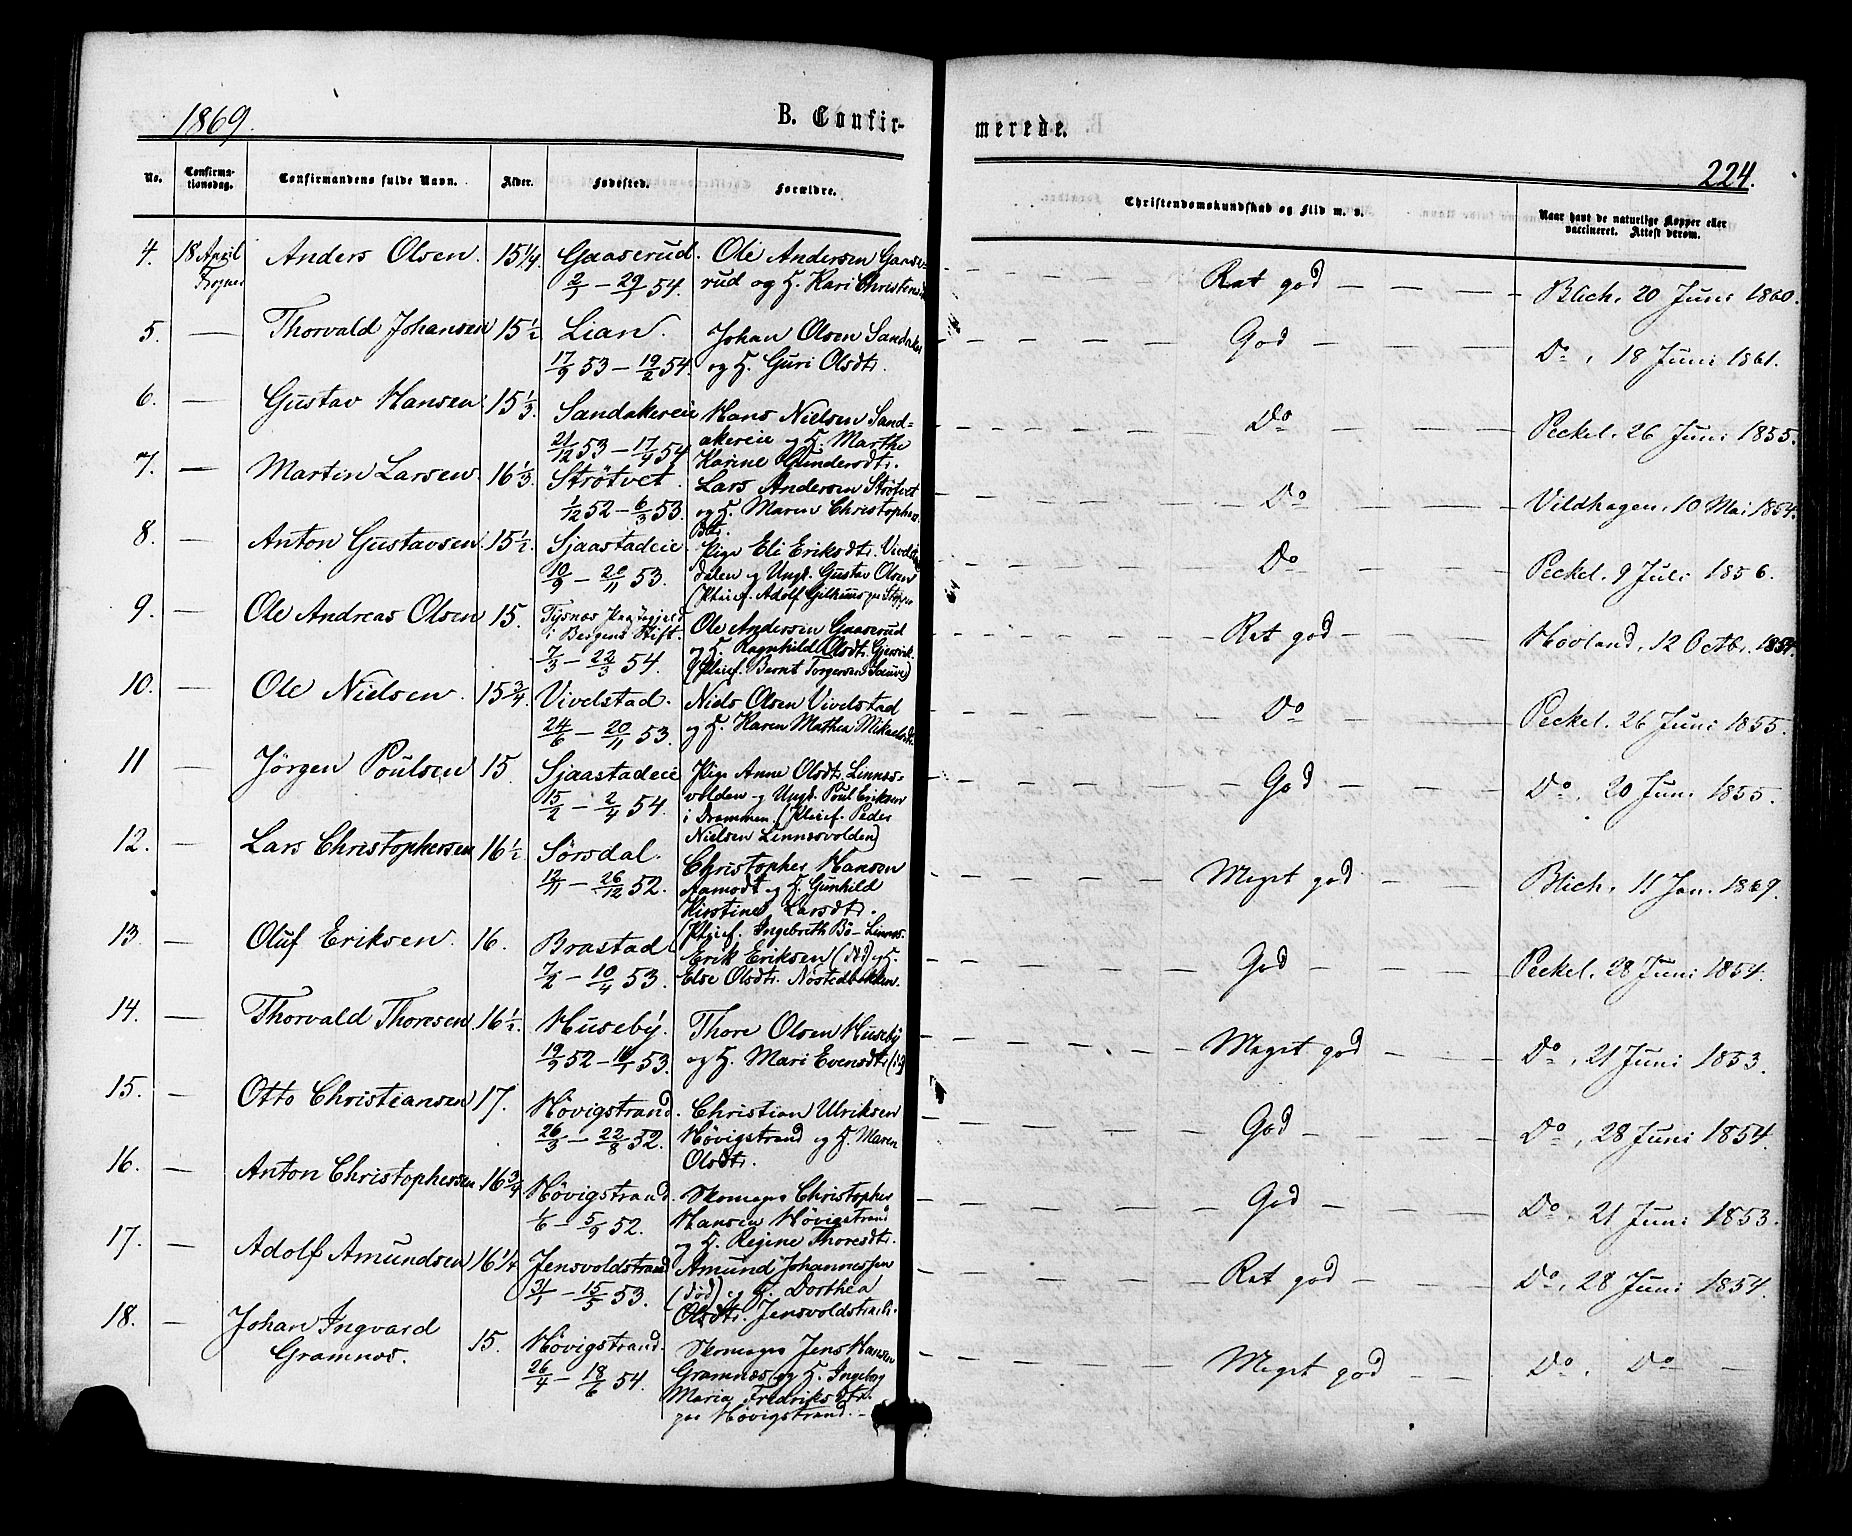 1869.
B. Confir-
merede.
224.
No.
Confirma-
tionsdag.
Confirmandens fulde Navn.
Alder.
Fødested.
Forældre.
Christendomskundskab og Flid m. v.
Naar havt de naturlige Kopper eller
vaccineret. Attest derom.
4. 18 April Anders Olsen. 15 1/4. Gaaserud. Ole Andersen Gaase- Rat god Blich. 20 Juni 1860.
Frogner 2/1 — 29/1 54. rud og H. Kari Christensd
5. — Thorvald Johansen 15 1/2 Lian. Johan Olsen Sandaker God Do, 18 Juni 1861.
17/9 53 — 19/2 54. og H. Guri Olsdtr.
6. — Gustav Hansen 15 1/3. Sandakereie Hans Nielsen Sand- Do Peckel. 26 Juni 1855.
21/12 53 — 17/4 54 akereie og H. Marthe
Karine Gundersdtr.
7. — Martin Larsen. 16 1/3. Strötvet. Lars Andersen Strötvet Do Vildhagen. 10 Mai 1854.
1/12 52 — 6/3 53. og H. Maren Christophers
Dtr.
8. — Anton Gustavsen 15 1/2. Sjaastadeie Pige Eli Eriksdtr. Do Peckel. 9 Juli 1856.
10/9 — 20/11 53. dalen og Ungk. Gustav Olsen
(Pleief. Adolf
9. — Ole Andreas Olsen 15. Tysnæs Præstegjeld Ole Andersen Gaaserud Rat god Hovland, 12 Octbr. 1854.
i Bergens Stift. og H. Ragnhild Olsdtr. Gjersvik.
7/3 — 22/3 54. (Pleief. Bernt Torgersen
10. — Ole Nielsen. 15 3/4. Vivelstad. Niels Olsen Vivelstad Do Peckel. 26 Juni 1855.
24/6 — 20/11 53. og H. Karen Mathea Mikaelsdtr.
11 — Jörgen Poulsen 15. Sjaastadeie Pige Anne Olsdtr. Linnes- God Do, 20 Juni 1855.
15/2 — 2/4 54. volden og Ungk. Poul Eriksen
i Drammen. (Pleief. Peder
Nielsen Linnesvolden)
12. — Lars Christophersen 16 1/2 Sörsdal. Christopher Hansen Meget god Blich. 11 Jan. 1869.
12/11 — 26/12 52. Aamodt og H. Gunhild
Kirstine Larsdtr.
(Pleief. Ingebrith Bö- Linnes.
13. — Oluf Eriksen. 16. Brastad Erik Eriksen (död) og H. God Peckel. 28 Juni 1854.
7/2 — 10/4 53. Else Olsdtr. Nöstedbakken.
14. — Thorvald Thoresen 16 1/2. Huseby. Thore Olsen Huseby Meget god Do, 21 Juni 1853.
19/9 52 — 16/1 53. og H. Mari Evensdtr.
15. — Otto Christiansen 17. Hövigstrand. Christian Ulriksen God Do, 28 Juni 1854.
26/3 — 22/8 52. Hövigstrand og H. Maren
Olsdtr.
16. — Anton Christophersen 16 3/4 Hövigstrand. Skomager Christopher God Do, 21 Juni 1853.
1/6 — 5/9 52. Hansen Hövigstrand
og H. Regine Thoresdtr.
17. — Adolf Amundsen 16 1/4 Jensvoldstrand Amund Johannessen Rat god Do, 28 Juni 1854.
31/1 — 15/5 53. (död) og H. Dorthea
Olsdtr. Jensvoldstrand.
18. — Johan Ingvard 15. Hövigstrand. Skomager Jens Hansen Meget god Do. Do —
Gramnæs. 26/4 — 18/6 54. Gramnæs og H. Ingeborg
Maria Fredriksdtr.
paa Hövigstrand. —